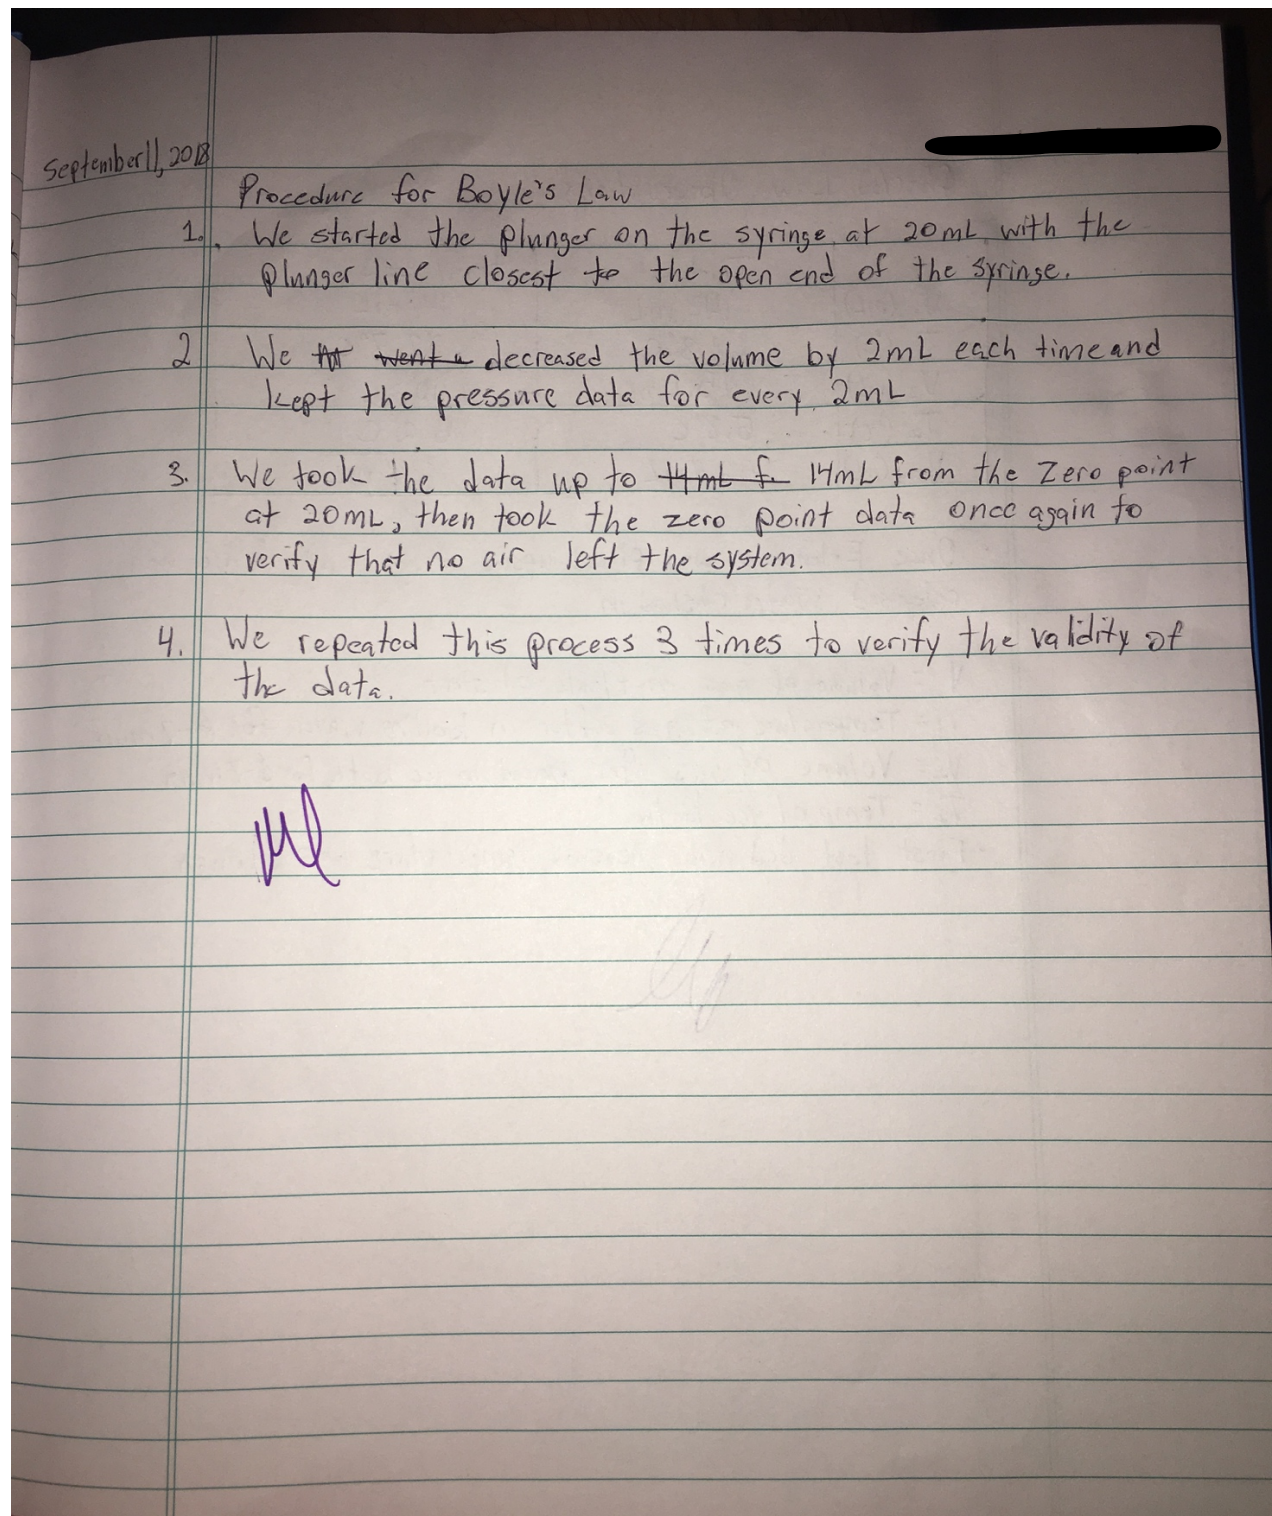 September 11, 2018
Procedure for Boyle's Law
1. We started the plunger on the syringe at 20mL with the
plunger line closest to the open end of the syringe.
2 We decreased the volume by 2mL each time and
kept the pressure data for every 2mL
3. We took the data up to 14mL f 14mL from the Zero point
at 20mL, then took the zero point data once again to
verify that no air left the system.
4. We repeated this process 3 times to verify the validity of
the data.